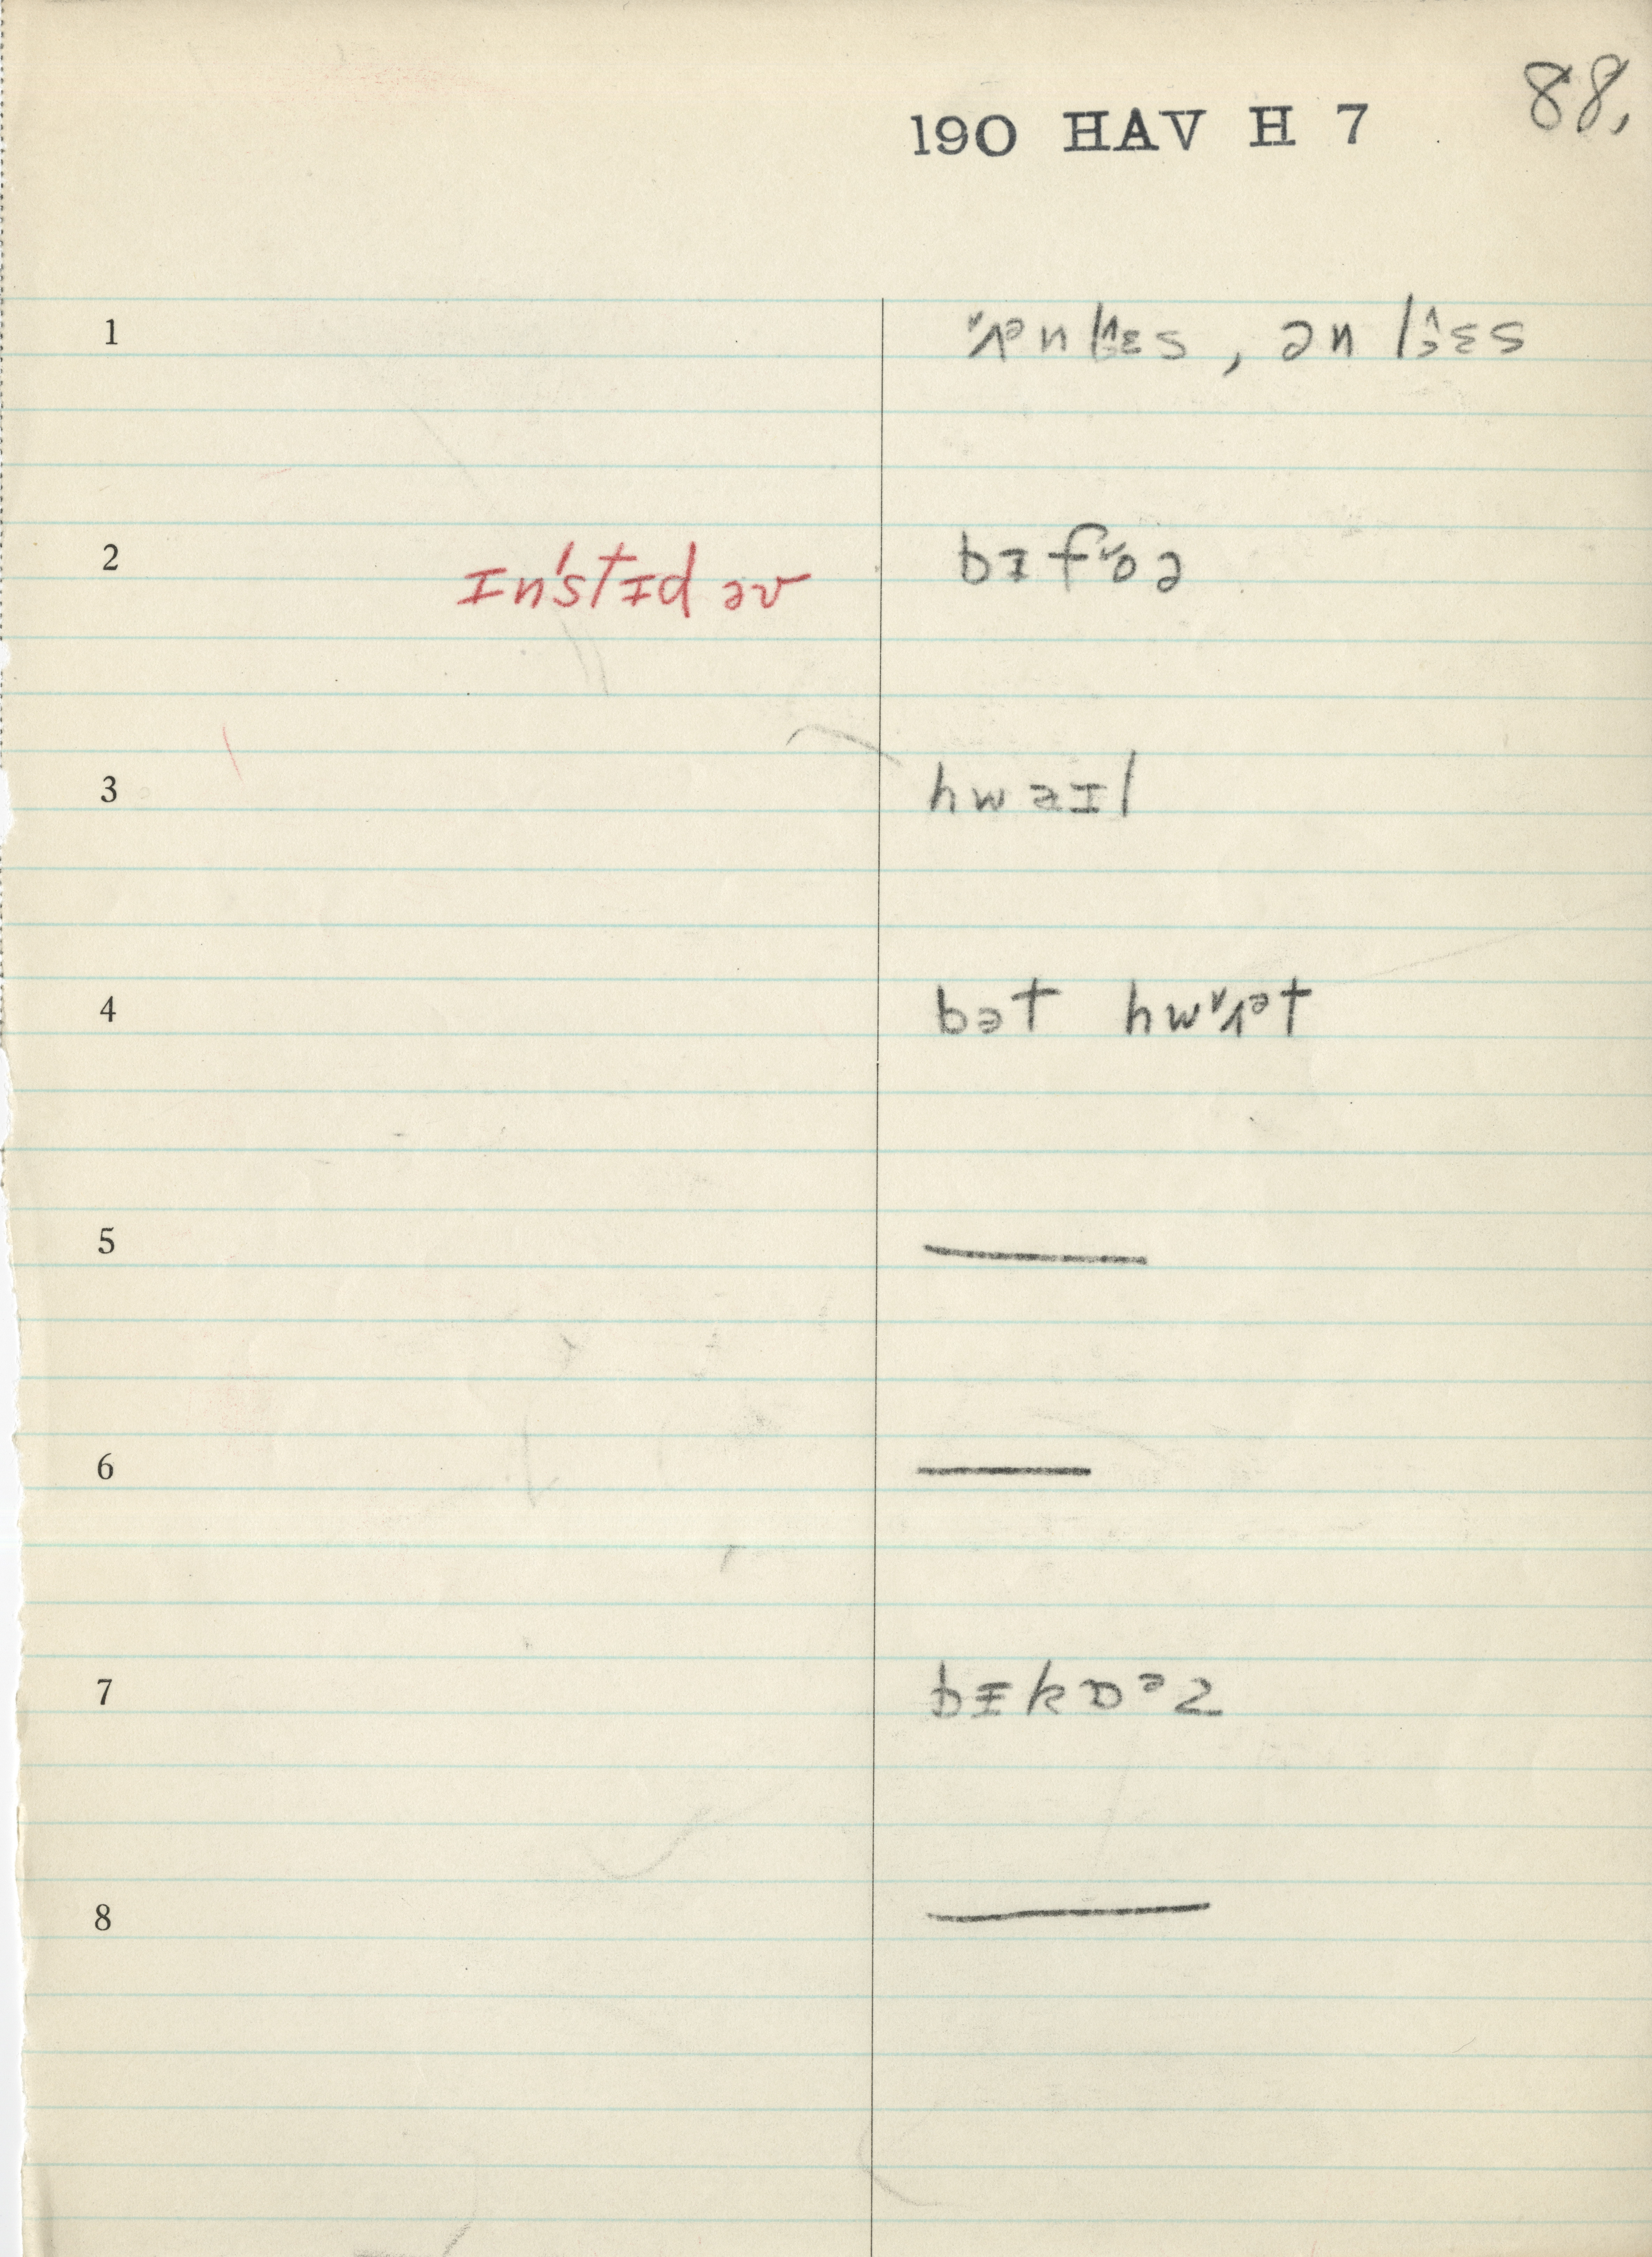 190 HAV H 7 88,
1 ʌᵊn lɛs, ən lɛs
2 ɪn'stɪd əv bɪfoə
3 hwaɪl
4 bət hwʌᵊt
5 ———
6 ———
7 bɪkɒᵊz
8 ———